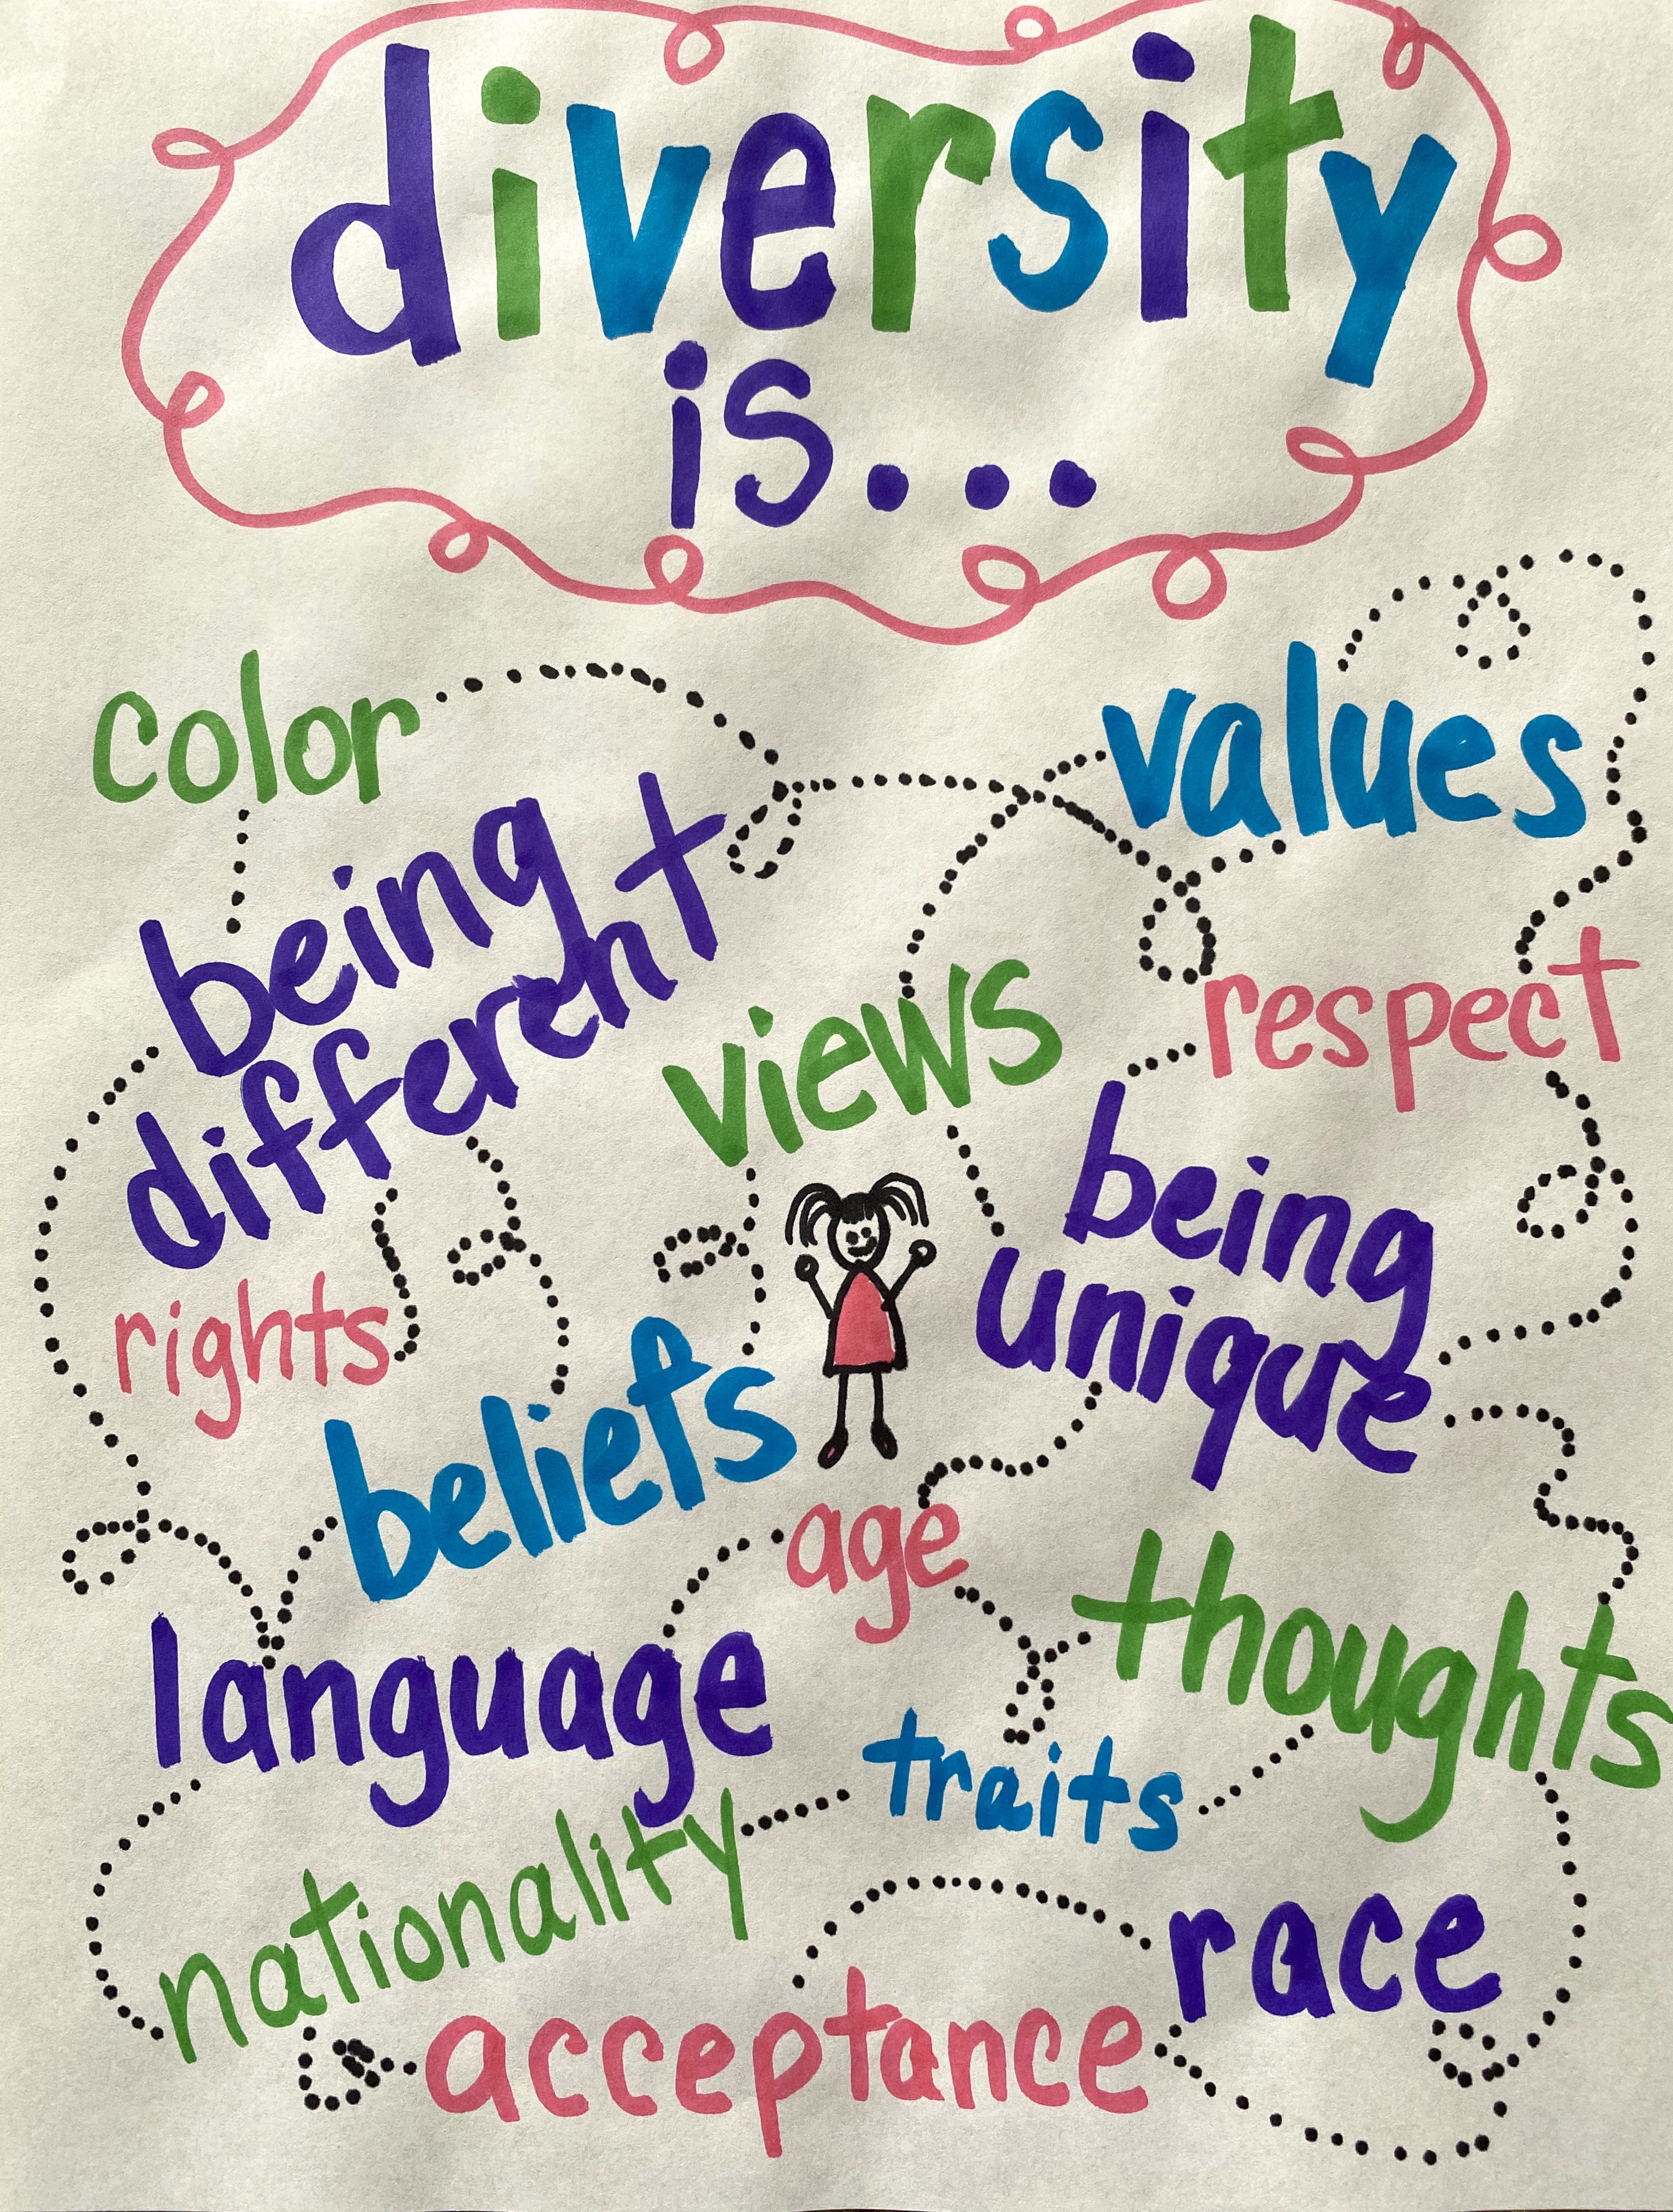 diversity
is...
color
values
being
different
respect
views
being
unique
rights
beliefs
age
thoughts
language
traits
nationality
race
acceptance